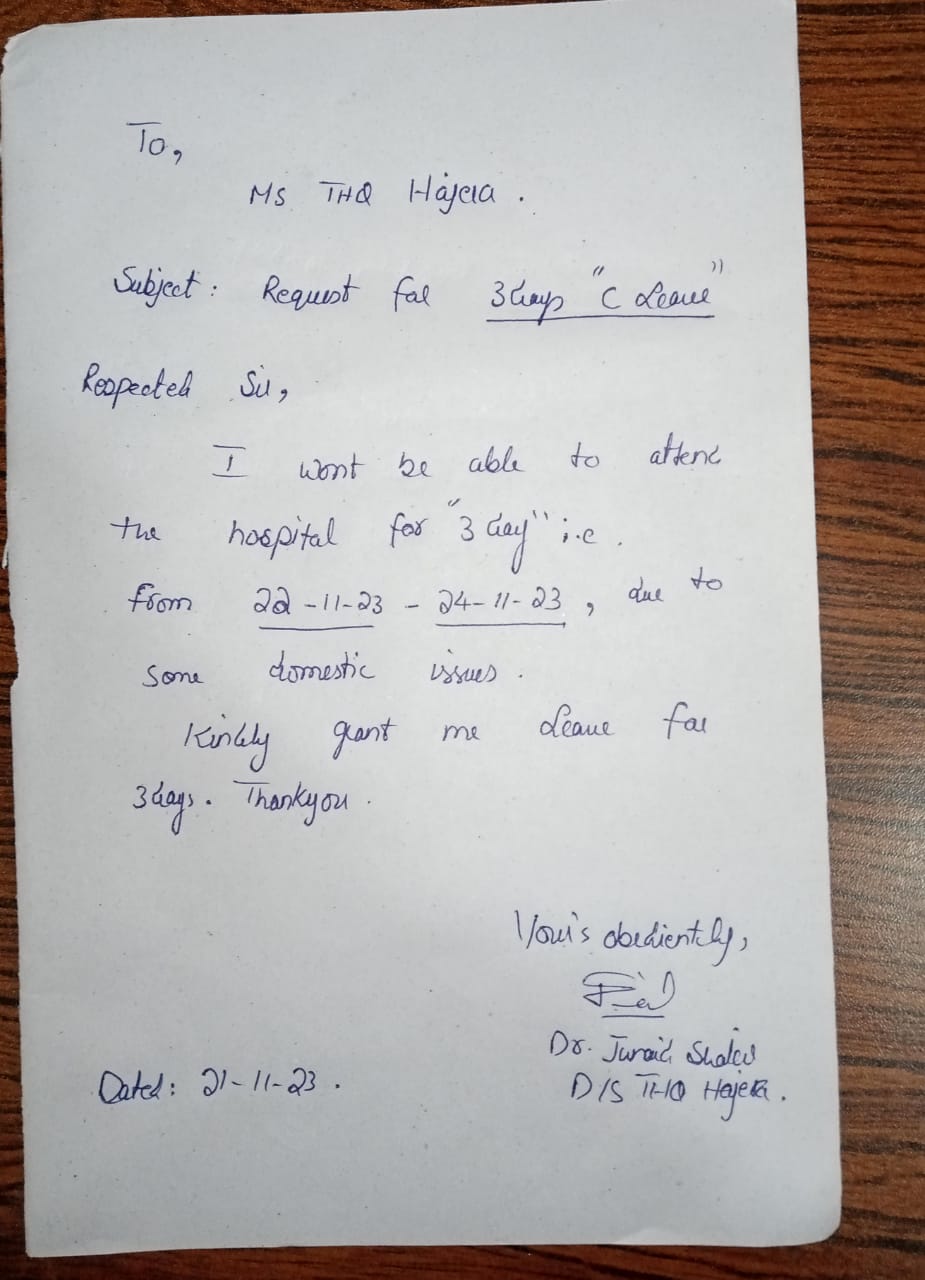 To,
MS THQ Hajera.
Subject: Request for 3 days "C Leave"
Respected Sir,
I wont be able to attend
the hospital for "3 day" i.e.
from 22-11-23 - 24-11-23, due to
some domestic issues.
Kindly grant me Leave for
3 days. Thankyou.
Your's obediently,
Dr. Junaid
D/S THQ Hajera.
Dated: 21-11-23.